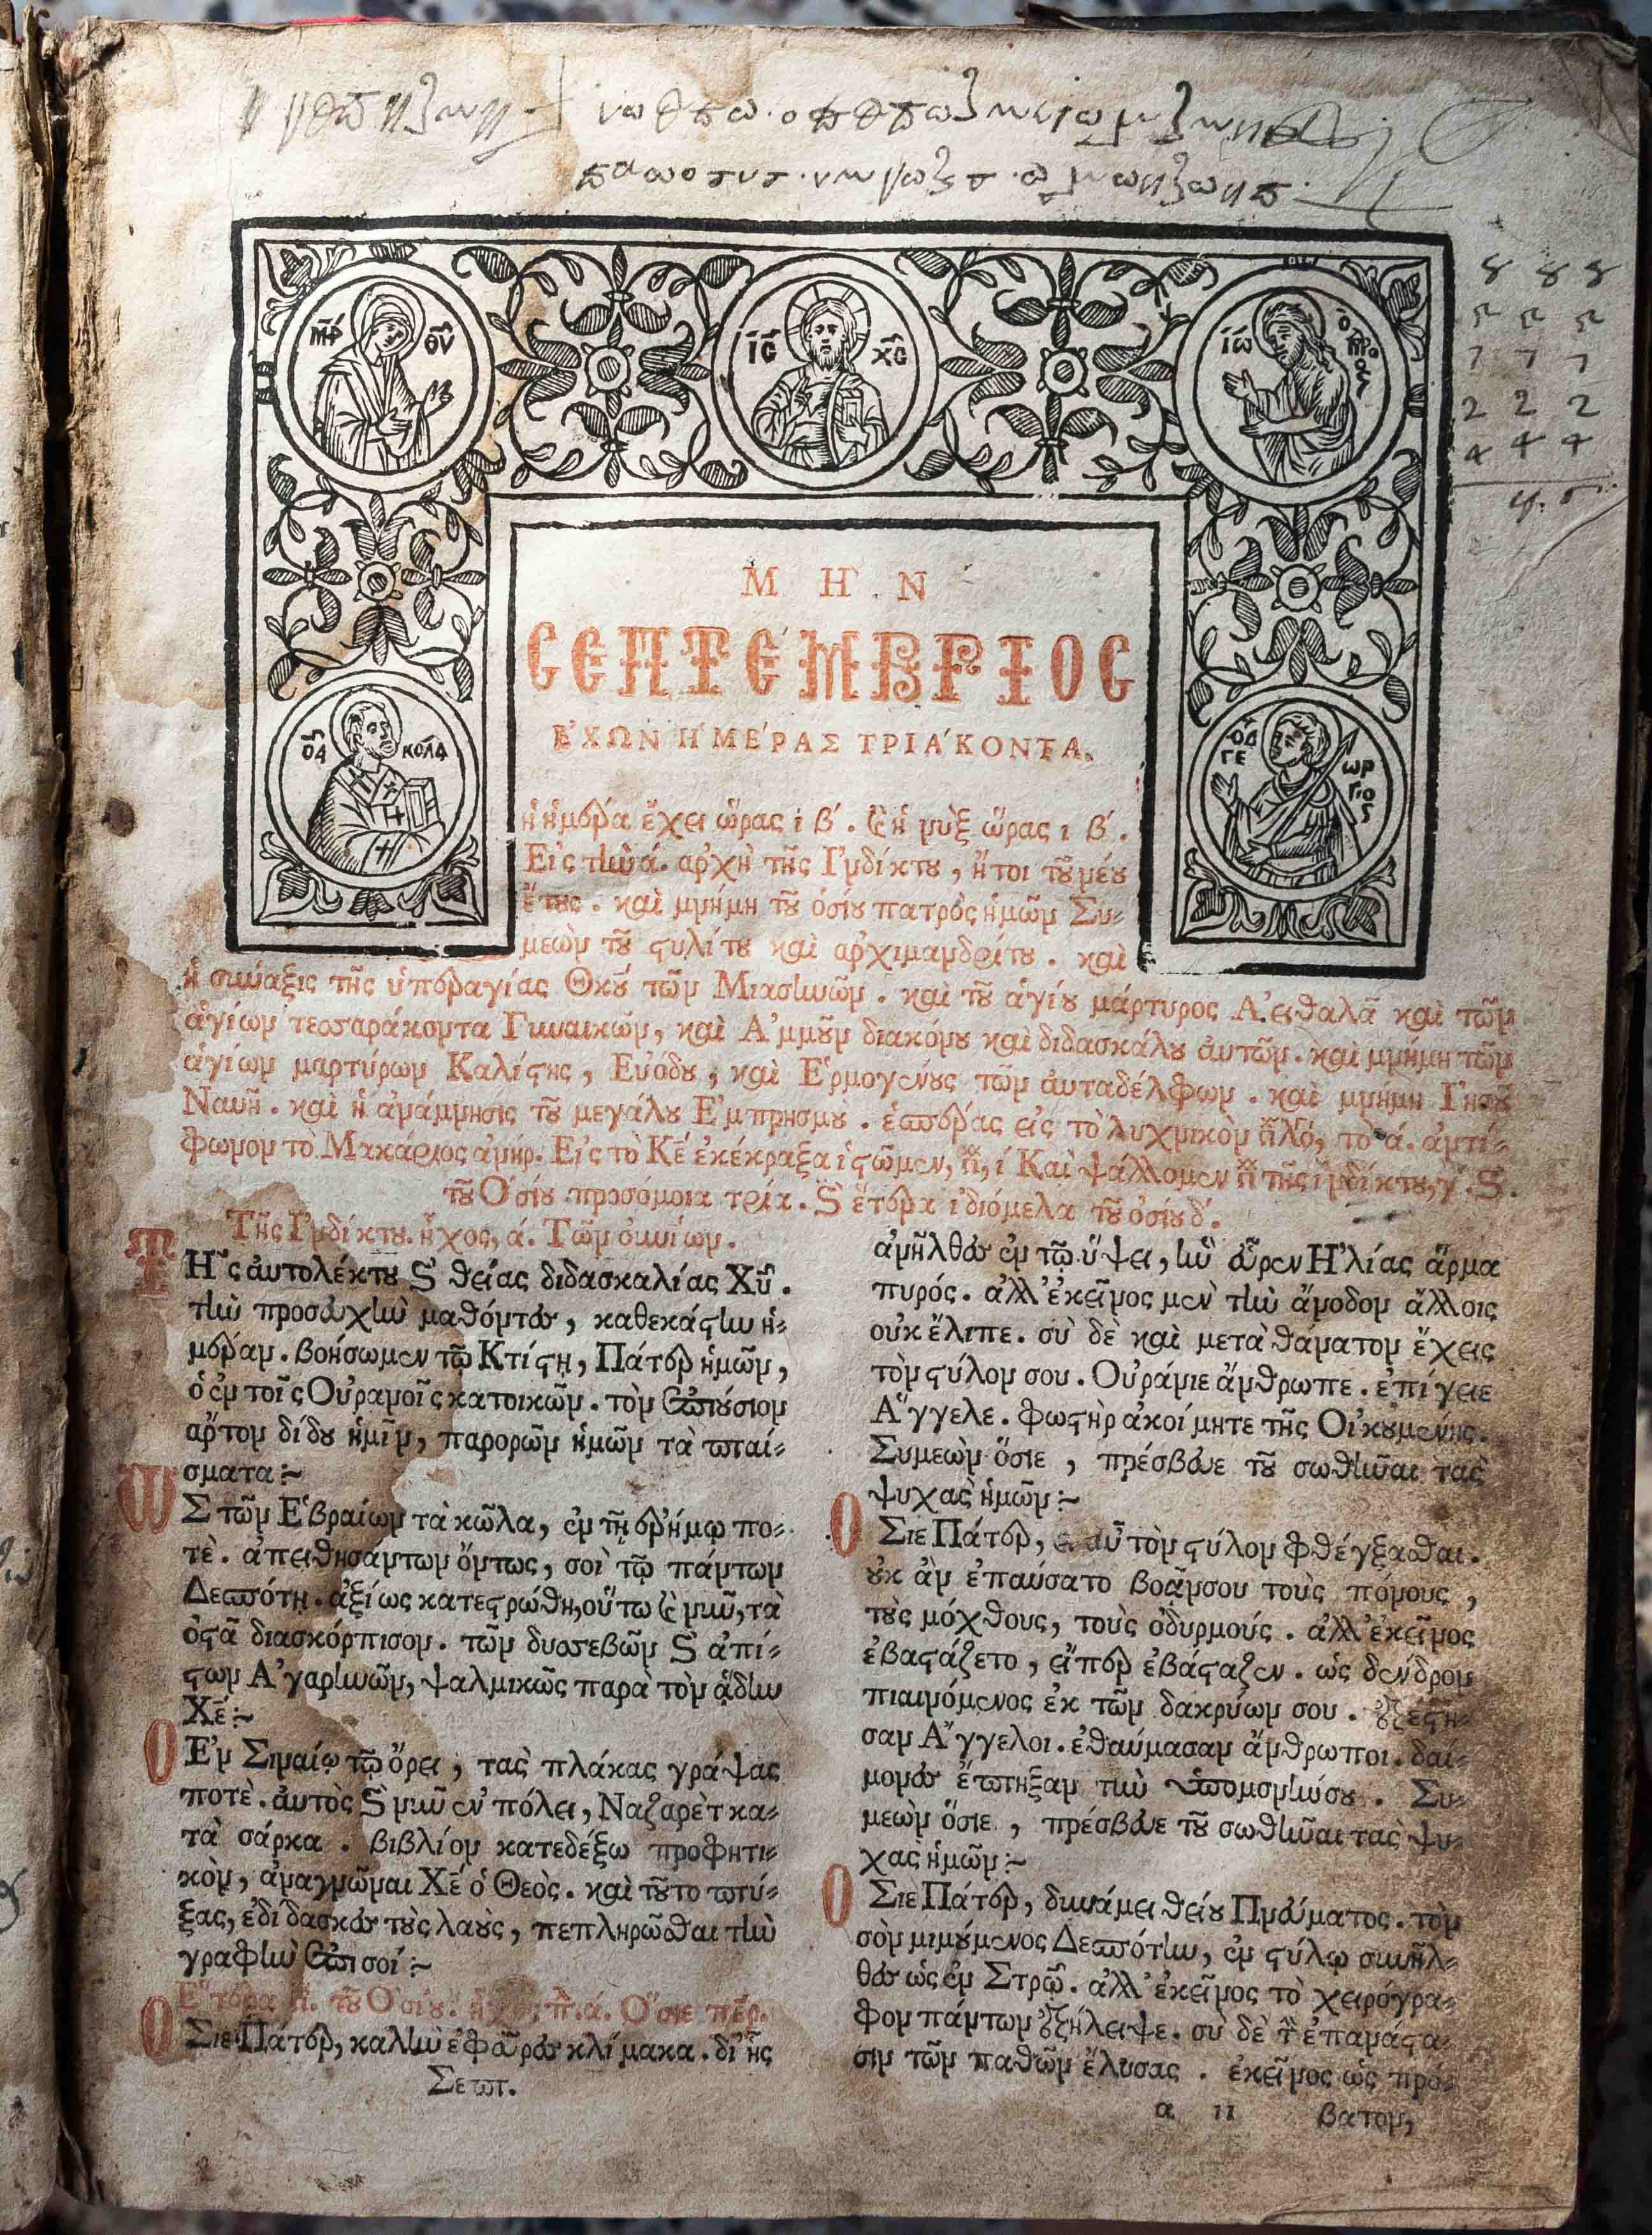 ΜΡ ΘΥ
ΙC ΧC
ΙΩ Ο ΠΡΟ
8 8 8
5 5 5
7 7 7
2 2 2
4 4 4
ΜΗΝ
CΕΠΤΕΜΒΡΙΟC
ΕΧΩΝ ΗΜΕΡΑΣ ΤΡΙΑΚΟΝΤΑ.
ΟΑ ΚΟΛΑ
ΟΑ ΓΕ ΩΡ ΓΙΟ ς
ἡ ἡμέρα ἔχει ὥρας ιβ΄. καὶ ἡ νὺξ ὥρας ιβ΄.
Εἰς τὴν ά. ἀρχὴ τῆς Ἰνδίκτου, ἤτοι τοῦ νέου
ἔτους. καὶ μνήμη τοῦ ὁσίου πατρὸς ἡμῶν Συ-
μεὼν τοῦ στυλίτου καὶ ἀρχιμανδρίτου. καὶ
ἡ σύναξις τῆς ὑπεραγίας Θκου τῶν Μιασηνῶν. καὶ τοῦ ἁγίου μάρτυρος Ἀειθαλᾶ καὶ τῶν
ἁγίων τεσσαράκοντα Γυναικῶν, καὶ Ἀμμοῦν διακόνου καὶ διδασκάλου αὐτῶν. καὶ μνήμη τῶν
ἁγίων μαρτύρων Καλίστης, Εὐόδου, καὶ Ἑρμογένους τῶν αὐταδέλφων. καὶ μνήμη Ἰησοῦ
Ναυῆ. καὶ ἡ ἀνάμνησις τοῦ μεγάλου Ἐμπρησμοῦ. ἑσπέρας εἰς τὸ λυχνικὸν τὸ ά. ἀντί-
φωνον τὸ Μακάριος ἀνήρ. Εἰς τὸ Κέ ἐκέκραξα ἱστῶμεν, ί Καὶ ψάλλομεν τῆς ἰνδίκτου, γ΄. καὶ
τοῦ Ὁσίου προσόμοια τρία. καὶ ἕτερα ἰδιόμελα τοῦ ὁσίου δ΄.
Τῆς Ἰνδίκτου. ἦχος, ά. Τῶν οὐρανίων.
ΤΗς αὐτολέκτου καὶ θείας διδασκαλίας Χῦ.
τὴν προσευχὴν μαθόντες, καθεκάστην ἡ-
μέραν. βοήσωμεν τῷ Κτίστῃ, Πάτερ ἡμῶν,
ὁ ἐν τοῖς Οὐρανοῖς κατοικῶν. τὸν ἐπιούσιον
ἄρτον δίδου ἡμῖν, παρορῶν ἡμῶν τὰ πταί-
σματα:~
ΩΣ τῶν Ἑβραίων τὰ κῶλα, ἐν τῇ ἐρήμῳ πο-
τὲ. ἀπειθησάντων ὄντως, σοὶ τῷ πάντων
Δεσπότῃ. ἀξίως κατεστρώθη, οὕτω καὶ νῦν, τὰ
ὀστᾶ διασκόρπισον. τῶν δυσσεβῶν καὶ ἀπί-
στων Ἀγαρηνῶν, ψαλμικῶς παρὰ τὸν ᾅδην
Χέ:~
Ο Ἐν Σιναίῳ τῷ ὄρει, τὰς πλάκας γράψας
ποτὲ. αὐτὸς καὶ νῦν ἐν πόλει, Ναζαρὲτ κα-
τὰ σάρκα. βιβλίον κατεδέξω προφητι-
κὸν, ἀναγνῶναι Χέ ὁ Θεὸς. καὶ τοῦτο πτύ-
ξας, ἐδίδασκες τοὺς λαοὺς, πεπληρῶσθαι τὴν
γραφὴν ἐπὶ σοί:~
Ἕτερα τοῦ Ὁσίου. ἦχος, πλ. ά. Ὅσιε πέρ.
ΟΣιε Πάτερ, καλὴν ἐφεῦρες κλίμακα. δι' ἧς
Σεπτ.
ἀνῆλθες ἐν τῷ ὕψει, ἣν εὗρεν Ἠλίας ἅρμα
πυρός. ἀλλ' ἐκεῖνος μὲν τὴν ἄνοδον ἄλλοις
οὐκ ἔλιπε. σὺ δὲ καὶ μετὰ θάνατον ἔχεις
τὸν στύλον σου. Οὐράνιε ἄνθρωπε. ἐπίγειε
Ἄγγελε. φωστὴρ ἀκοίμητε τῆς Οἰκουμένης.
Συμεὼν ὅσιε, πρέσβευε τοῦ σωθῆναι τὰς
ψυχὰς ἡμῶν:~
ΟΣιε Πάτερ, εἰ ἦν τὸν στύλον φθέγξασθαι.
οὐκ ἂν ἐπαύσατο βοᾶν σου τοὺς πόνους,
τοὺς μόχθους, τοὺς ὀδυρμούς. ἀλλ' ἐκεῖνος
ἐβαστάζετο, εἴπερ ἐβάσταζεν. ὡς δένδρον
πιαινόμενος ἐκ τῶν δακρύων σου. ἐξέστη-
σαν Ἄγγελοι. ἐθαύμασαν ἄνθρωποι. δαί-
μονες ἔπτηξαν τὴν ὑπομονήν σου. Συ-
μεὼν ὅσιε, πρέσβευε τοῦ σωθῆναι τὰς ψυ-
χὰς ἡμῶν:~
ΟΣιε Πάτερ, δυνάμει θείου Πνεύματος. τὸν
σὸν μιμούμενος Δεσπότην, ἐν στύλῳ συνῆλ-
θες ὡς ἐν Στρῷ. ἀλλ' ἐκεῖνος τὸ χειρόγρα-
φον πάντων ἐξήλειψε. σὺ δὲ τὴν ἐπανάστα-
σιν τῶν παθῶν ἔλυσας. ἐκεῖνος ὡς πρό-
α ιι βατον,